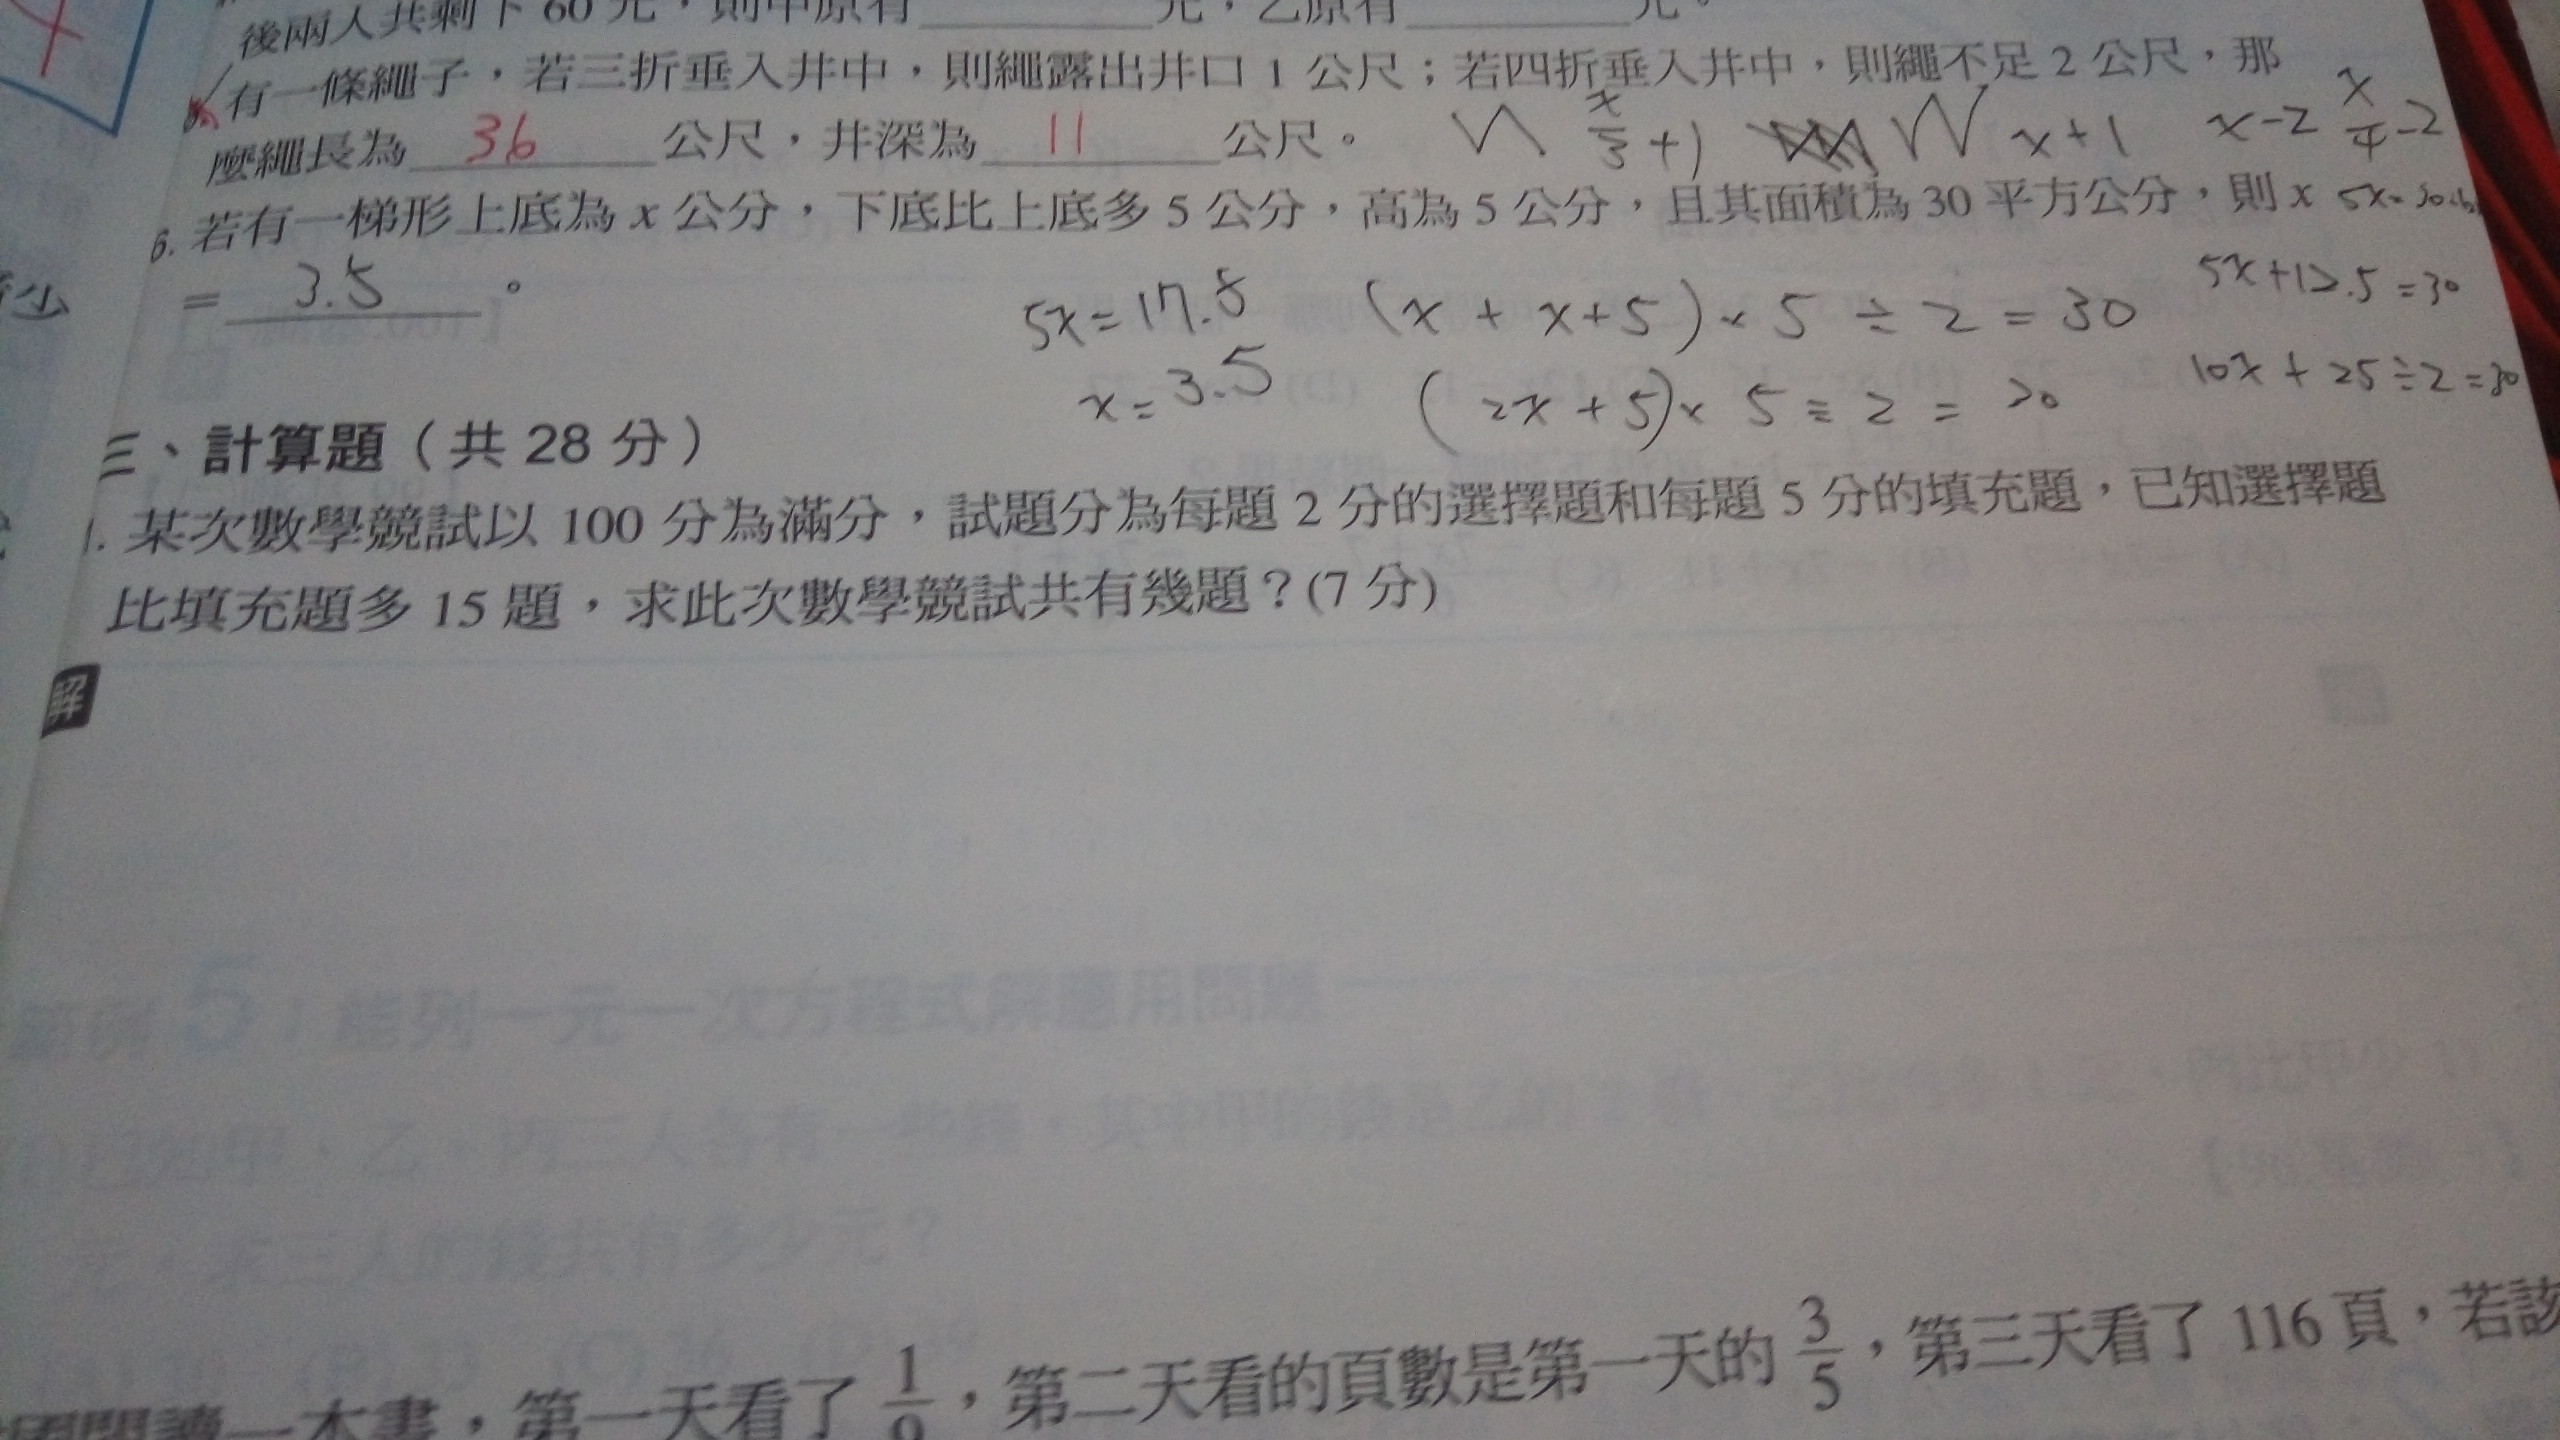 後兩人共剩下 60 元，則甲原有＿＿＿元，乙原有＿＿＿元。
有一條繩子，若三折垂入井中，則繩露出井口 1 公尺；若四折垂入井中，則繩不足 2 公尺，那
麼繩長為 36 公尺，井深為 11 公尺。
x/3 +1 x+1 x-2 x/4 -2
6. 若有一梯形上底為 x 公分，下底比上底多 5 公分，高為 5 公分，且其面積為 30 平方公分，則 x
= 3.5 。
5x=17.5 (x + x+5) × 5 ÷ 2 = 30 5x+12.5=30
x=3.5 (2x+5)× 5 ÷ 2 = 30 10x + 25÷2=30
三、計算題（共 28 分）
1. 某次數學競試以 100 分為滿分，試題分為每題 2 分的選擇題和每題 5 分的填充題，已知選擇題
比填充題多 15 題，求此次數學競試共有幾題？(7 分)
解
閱讀一本書，第一天看了 1/9，第二天看的頁數是第一天的 3/5，第三天看了 116 頁，若該